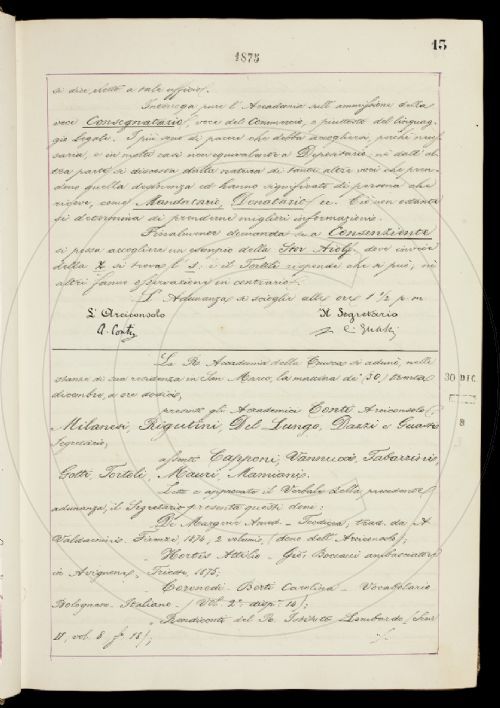 15
1875
si dice eletto a tale ufficio.
Interroga pure l'Accademia sull'ammissione della
voce Consegnatario, voce del Commercio, e piuttosto del linguag-
gio legale. I più sono di parere che debba accogliersi, perchè neces-
saria, e in molti casi non equivalente a Depositario: nè dall'al-
tra parte si discosta dalla natura di tante altre voci che pren-
dono quella desinenza ed hanno significato di persona che
riceve, come Mandatario, Donatario ec. Ciò non ostante
si determina di prenderne migliori informazioni.
Finalmente domanda se a Consenziente
si possa accogliere un esempio della Stor. Aiolf. dove invece
della z si trova l's; e il Tortoli risponde che si può; nè
altri fanno osservazione in contrario.
L'Adunanza si scioglie alle ore 1 1/2 p. m.
L'Arciconsolo Il Segretario
A. Conti C. Guasti
La R. Accademia della Crusca si adunò, nelle
stanze di sua residenza in San Marco, la mattina de' 30/trenta
dicembre, a ore dodici,
30 DIC.
presenti gli Accademici Conti Arciconsolo,
Milanesi, Rigutini, Del Lungo, Dazzi e Guasti
Segretario,
8
assenti Capponi, Vannucci, Tabarrini,
Gotti, Tortoli, Mauri, Mamiani.
Letto e approvato il Verbale della precedente
adunanza, il Segretario presenta questi doni:
Di Margerie Amed. - Teodicea, trad. da A.
Valdarnini. Firenze, 1874, 2 volumi, (dono dell'Arciconsolo);
Hortis Attilio - Gio. Boccacci ambasciatore
in Avignone, Trieste, 1875;
Coronedi-Berti Carolina - Vocabolario
Bolognese Italiano (Vol. 2°. disp. 14);
Rendiconti del R. Istituto Lombardo (Serie
II, vol. 8, f. 18);
./.